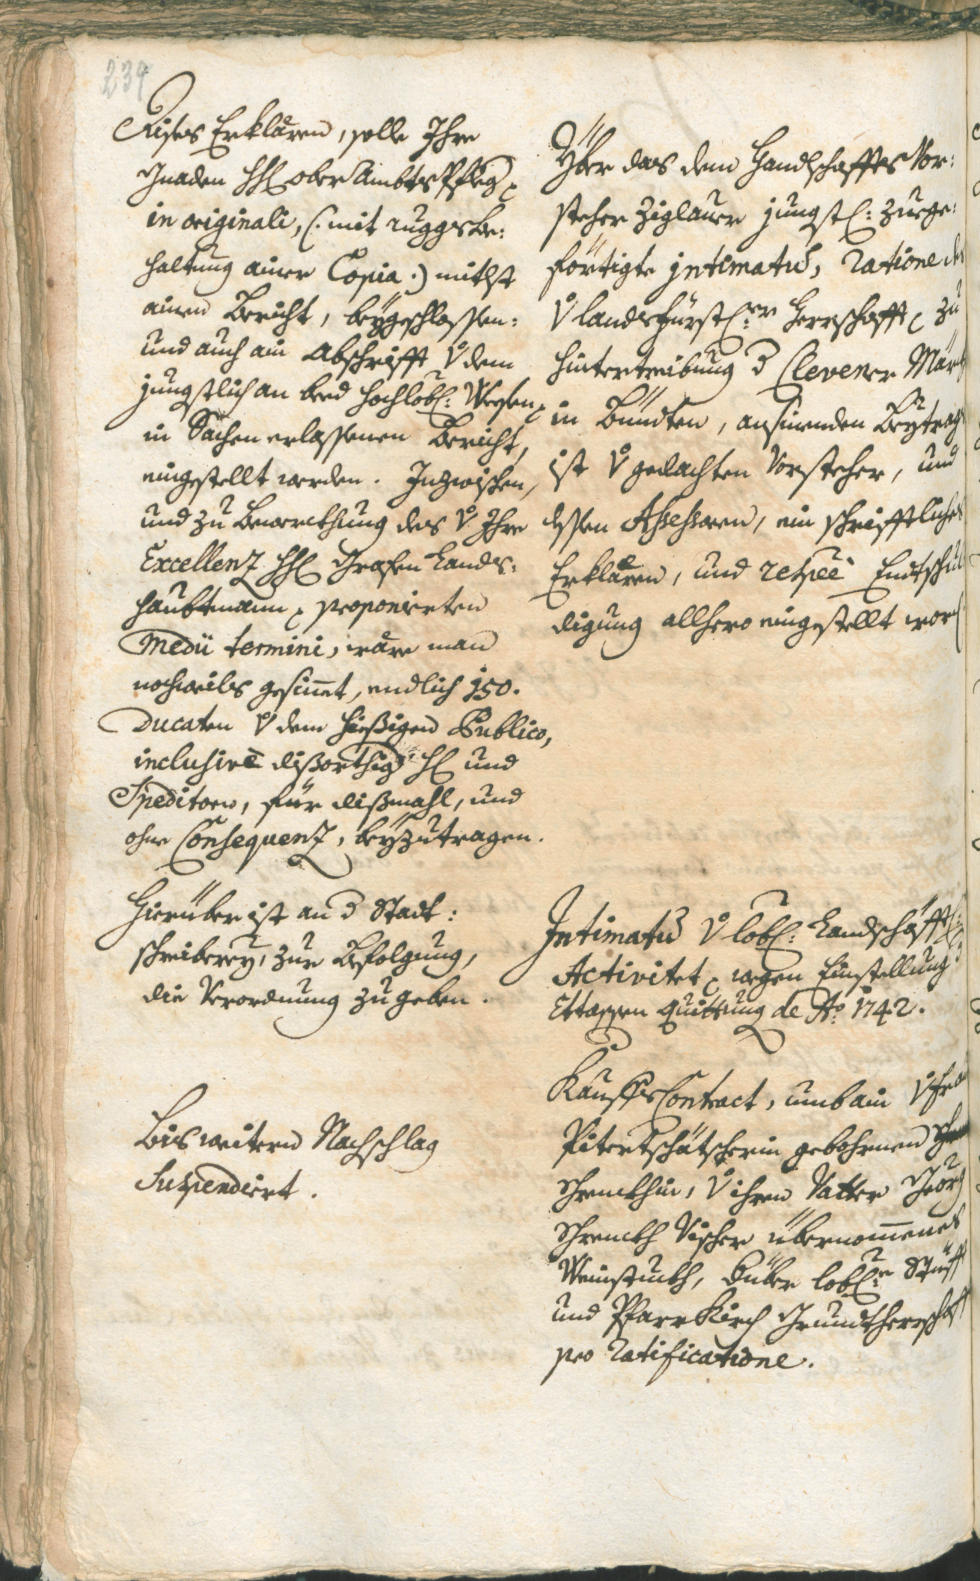 234
Dises Erklären, solle Ihre
Gnaden HH ober Ambts Pfleg
in originali, (: mit ruggsbe:
haltung ainer Copia :) mithst
ainem Bericht, beygeschlossen:
und auch ain Abschrifft V dem
jungstlich an beed hochlobl: Wesen
in Sachen erlassenen Bericht,
eingestellt werden. Inzwischen,
und zu bewerckhung des V Ihro
Excellenz HH Grafen Lands:
haubtmann proponierten
Medii termini, wäre man
nochmals gesinnet, endlich 150.
Ducaten V dem hießigen Publico,
inclusivè dißorthig H und
Speditorn, für dißmahl, und
ohne Consequenz, beyzutragen.
Hierüber ist an d Statt:
schreiberey, zur Befolgung,
die Verordnung zugeben.
Bis weitern Nachschlag
Suspendiert.
Yber das dem Handlschaffts Vor:
steher Ziglauer jungstl: zuege:
förtigte jntimatum, Ratione der
V landsfürstl:en Herrschafft zu
hintertreibung d Clevener Märckh
in Bündten, ansinenden Beytrags
ist V gedachten Vorsteher, und
dessen Assessorn, ein schrifftliches
Erklären, und respec̀ Entschul
digung allhero eingestellt word
Intimatum V lobl: Landschäfftl:
Activitet wegen Einstellung d
Ettappen Quittung de Aō 1742.
Kauffs Contract, umb ain V Fra
Pitertschätscherin gebohrnen
Schreckhin, V ihren Vatter Georg
Schreckh Vischer übernommenes
Weinstuckh, Güter lobl:r Stüfft
und Pfarrkirch Grundtherrschafft
pro Ratificatione.